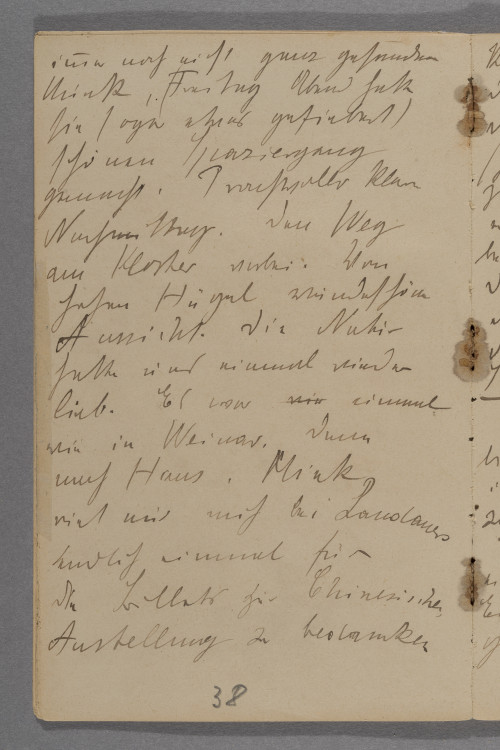 immer noch nicht ganz gesunden
Mink. (Freitag Abend hatte
sie sogar etwas gefiebert)
schönen Spaziergang
gemacht. Prachtvoller klarer
Nachmittag. Den Weg
am Kloster vorbei. Vom
hohen Hügel wunderschöne
Aussicht. Die Natur
hatte uns einmal wieder
lieb. Es war wie einmal
wie in Weimar. Dann
nach Haus. Mink
riet mir mich bei Landauers
endlich einmal für
die Billets zur Chinesischen
Austellung zu bedanken
38